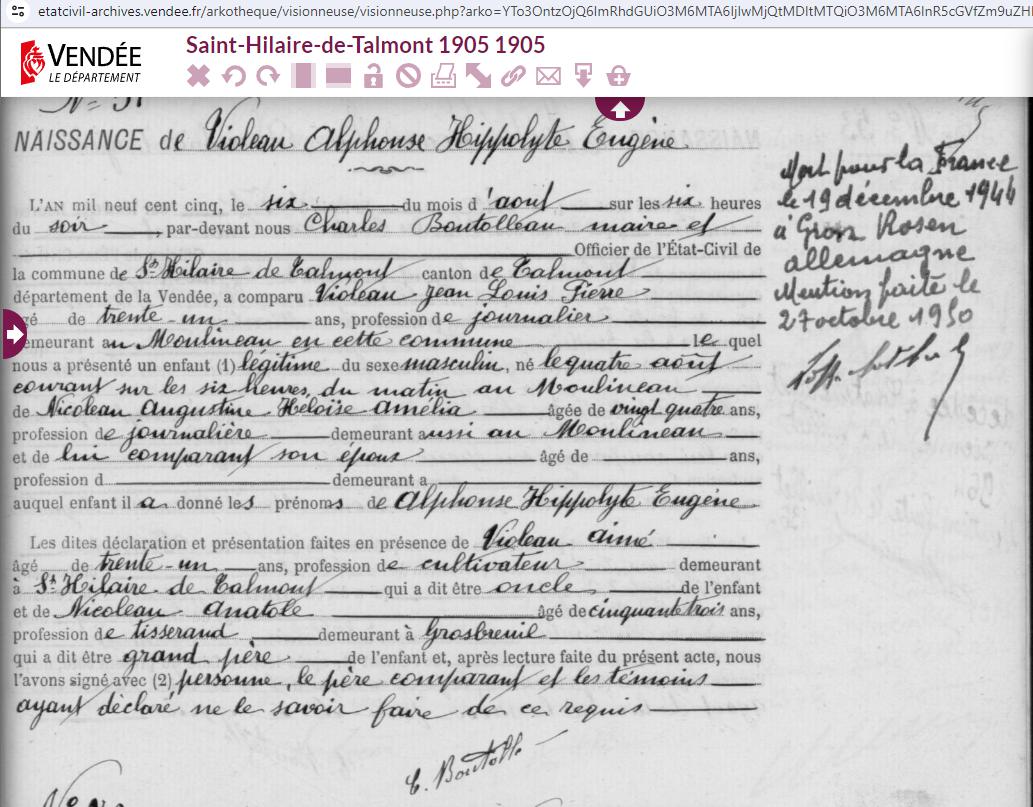 etatcivil-archives.vendee.fr/arkotheque/visionneuse/visionneuse.php?arko=
VENDÉE
LE DÉPARTEMENT
Saint-Hilaire-de-Talmont 1905 1905
NAISSANCE de Violeau Alphonse Hippolyte Eugène
L'AN mil neuf cent cinq, le six du mois d'aout sur les six heures
du soir, par-devant nous Charles Boutolleau maire et
Officier de l'État-Civil de
la commune de St Hilaire de Talmont canton de Talmont
département de la Vendée, a comparu Violeau Jean Louis Pierre
âgé de trente-un ans, profession de journalier
demeurant au Moulineau en cette commune lequel
nous a présenté un enfant (1) légitime du sexe masculin, né le quatre août
courant sur les six heures, du matin au Moulineau
de Nicoleau Augustine Héloïse Amélia âgée de vingt quatre ans,
profession de journalière demeurant aussi au Moulineau
et de lui comparant son époux âgé de ans,
profession d demeurant à
auquel enfant il a donné les prénoms de Alphonse Hippolyte Eugène
Les dites déclaration et présentation faites en présence de Violeau aimé
âgé de trente-un ans, profession de cultivateur demeurant
à St Hilaire de Talmont qui a dit être oncle de l'enfant
et de Nicoleau Anatole âgé de cinquante trois ans,
profession de tisserand demeurant à Grosbreuil
qui a dit être grand père de l'enfant et, après lecture faite du présent acte, nous
l'avons signé avec (2) personne, le père comparant et les témoins
ayant déclaré ne le savoir faire de ce requis
C. Boutolle
Mort pour la France
le 19 décembre 1944
à Gross Rosen
allemagne
Mention faite le
27 octobre 1950